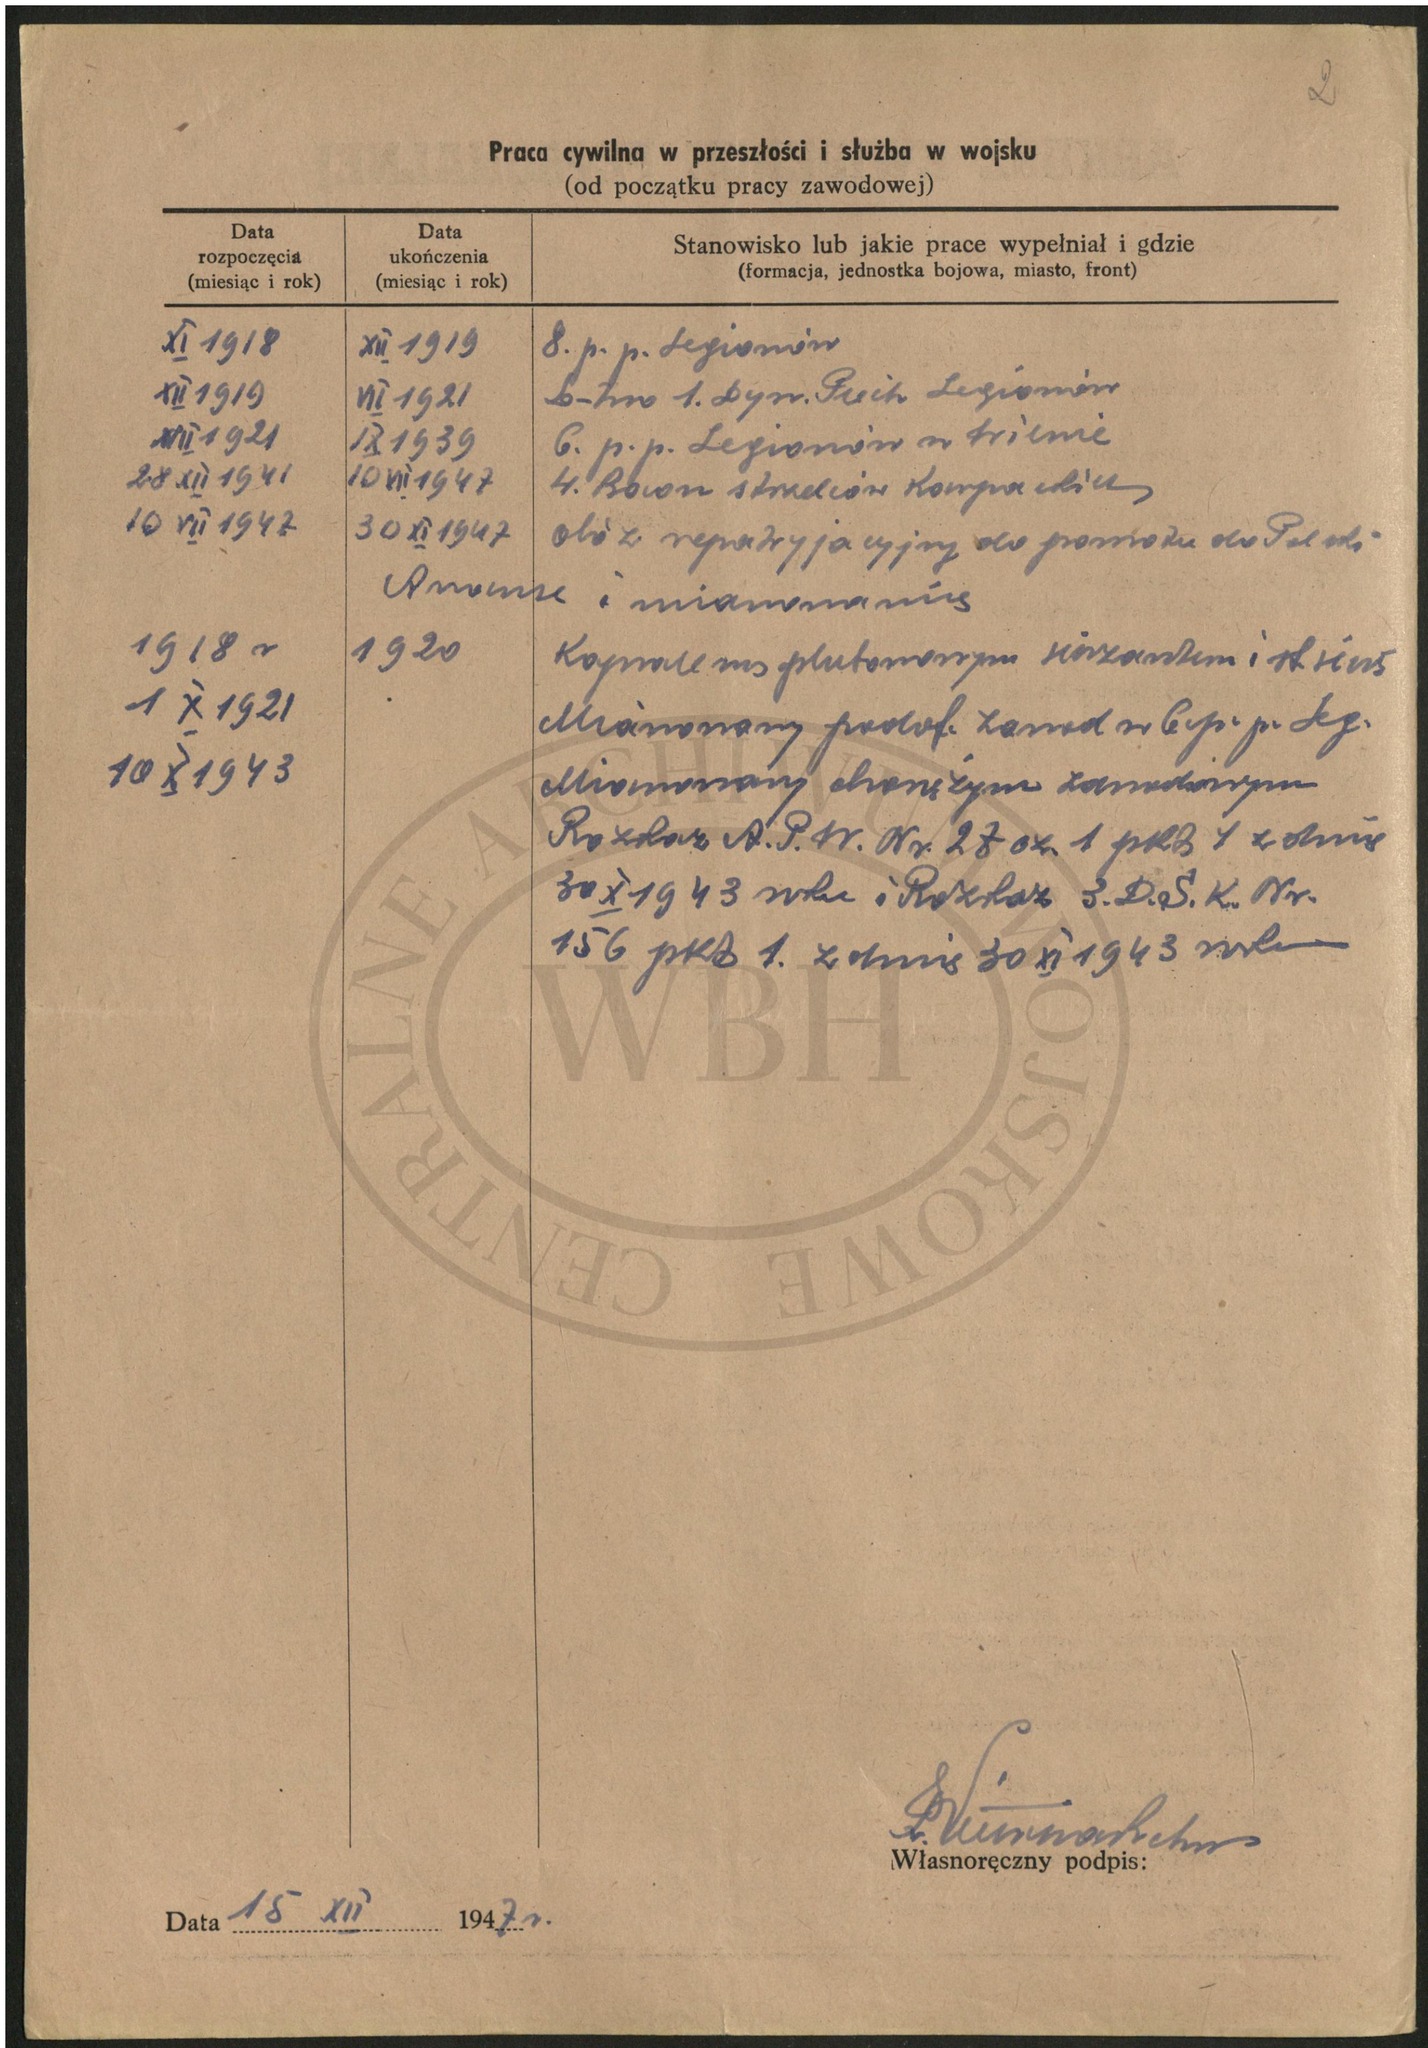 2
Praca cywilna w przeszłości i służba w wojsku
(od początku pracy zawodowej)
Data rozpoczęcia (miesiąc i rok)
Data ukończenia (miesiąc i rok)
Stanowisko lub jakie prace wypełniał i gdzie
(formacja, jednostka bojowa, miasto, front)
XI 1918 XII 1919 8. p. p. Legionów
XII 1919 VII 1921 D-two 1. Dyw. Piech Legionów
VII 1921 IX 1939 6. p. p. Legionów w Wilnie
28 XII 1941 10 VII 1947 4. Baon strzelców Karpackich
10 VII 1947 30 XI 1947 obóz repatryjacyjny do powrotu do Polski
Awanse i mianowania
1918 r 1920 Kapralem plutonowym sierżantem i st sierż
1 X 1921 Mianowany podof. zawod w 6 p. p. Leg.
10 X 1943 Mianowany chorążym zawodowym
Rozkaz A. P. W. Nr. 28 oz. 1 pkt 1 z dnia
30 X 1943 roku i Rozkaz 3. D. S. K. Nr.
156 pkt 1. z dnia 30 XI 1943 roku
CENTRALNE ARCHIWUM WOJSKOWE
WBH
Własnoręczny podpis:
Data 15 XII 1947 r.